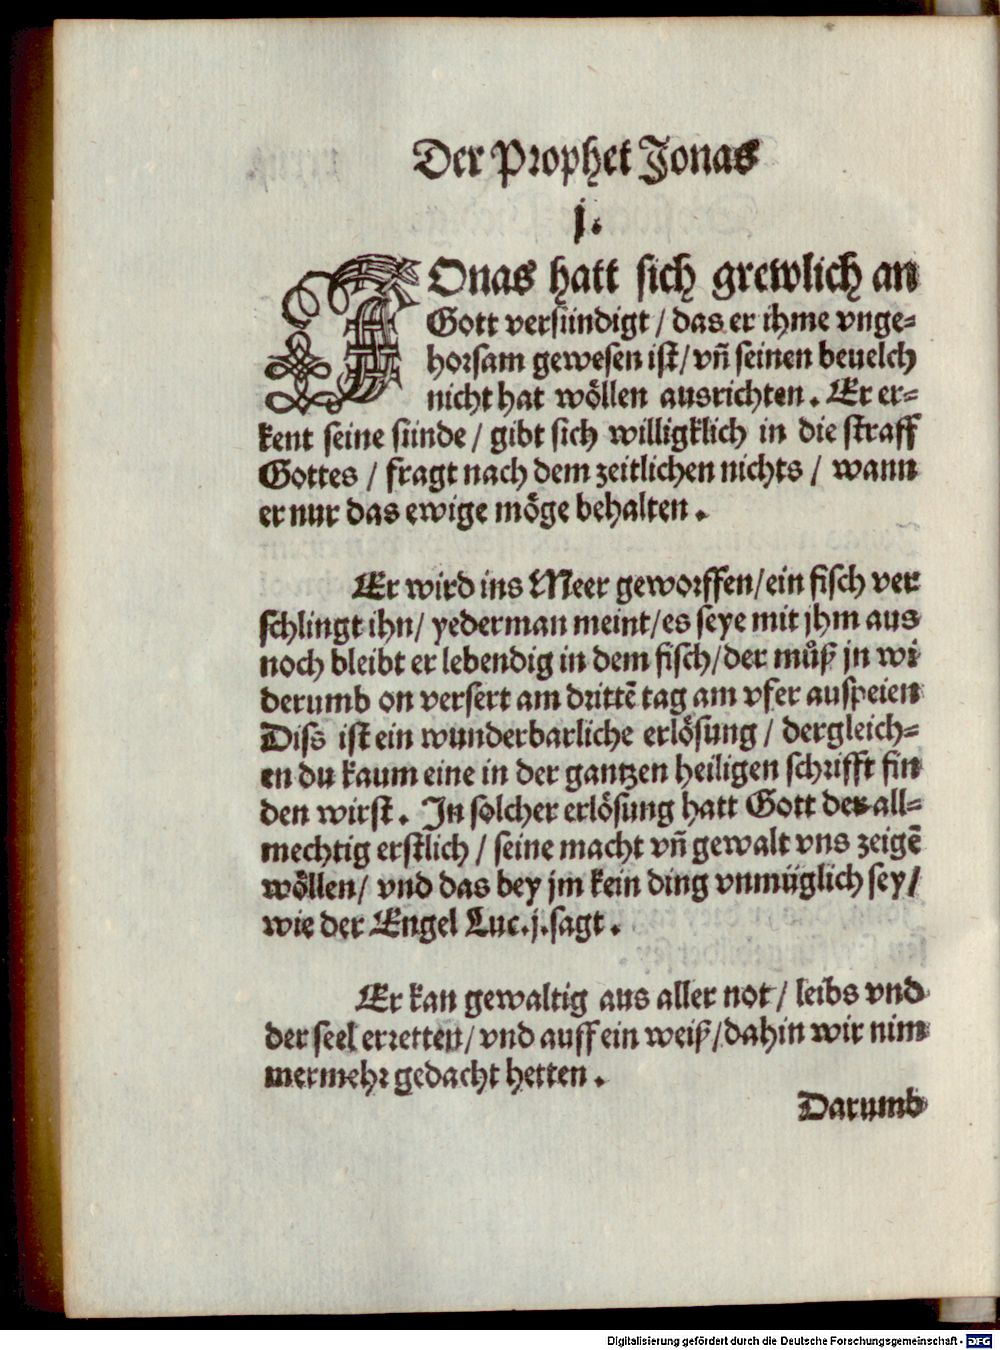 Der Prophet Jonas
j.
JOnas hatt sich grewlich an
Gott versündigt / das er ihme vnge-
horsam gewesen ist / vñ seinen beuelch
nicht hat wöllen ausrichten. Er er-
kent seine sünde / gibt sich willigklich in die straff
Gottes / fragt nach dem zeitlichen nichts / wann
er nur das ewige möge behalten.
Er wird ins Meer geworffen / ein fisch ver
schlingt ihn / yederman meint / es seye mit jhm aus
noch bleibt er lebendig in dem fisch / der můß jn wi
derumb on versert am drittẽ tag am vfer auspeien
Diss ist ein wunderbarliche erlösung / dergleich-
en du kaum eine in der gantzen heiligen schrifft fin
den wirst. In solcher erlösung hatt Gott der all-
mechtig erstlich / seine macht vñ gewalt vns zeigẽ
wöllen / vnd das bey jm kein ding vnmüglich sey /
wie der Engel Luc. j. sagt.
Er kan gewaltig aus aller not / leibs vnd
der seel erretten / vnd auff ein weiß / dahin wir nim
mermehr gedacht hetten.
Darumb
Digitalisierung gefördert durch die Deutsche Forschungsgemeinschaft - DFG